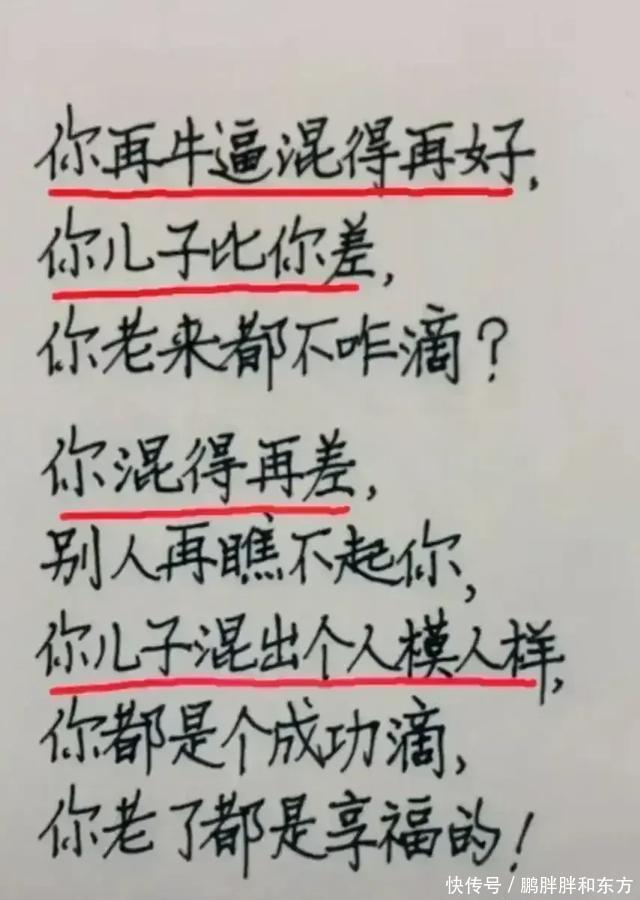 你再牛逼混得再好，
你儿子比你差，
你老来都不咋滴？
你混得再差，
别人再瞧不起你，
你儿子混出个人模人样，
你都是个成功滴，
你老了都是享福的！
快传号／鹏胖胖和东方